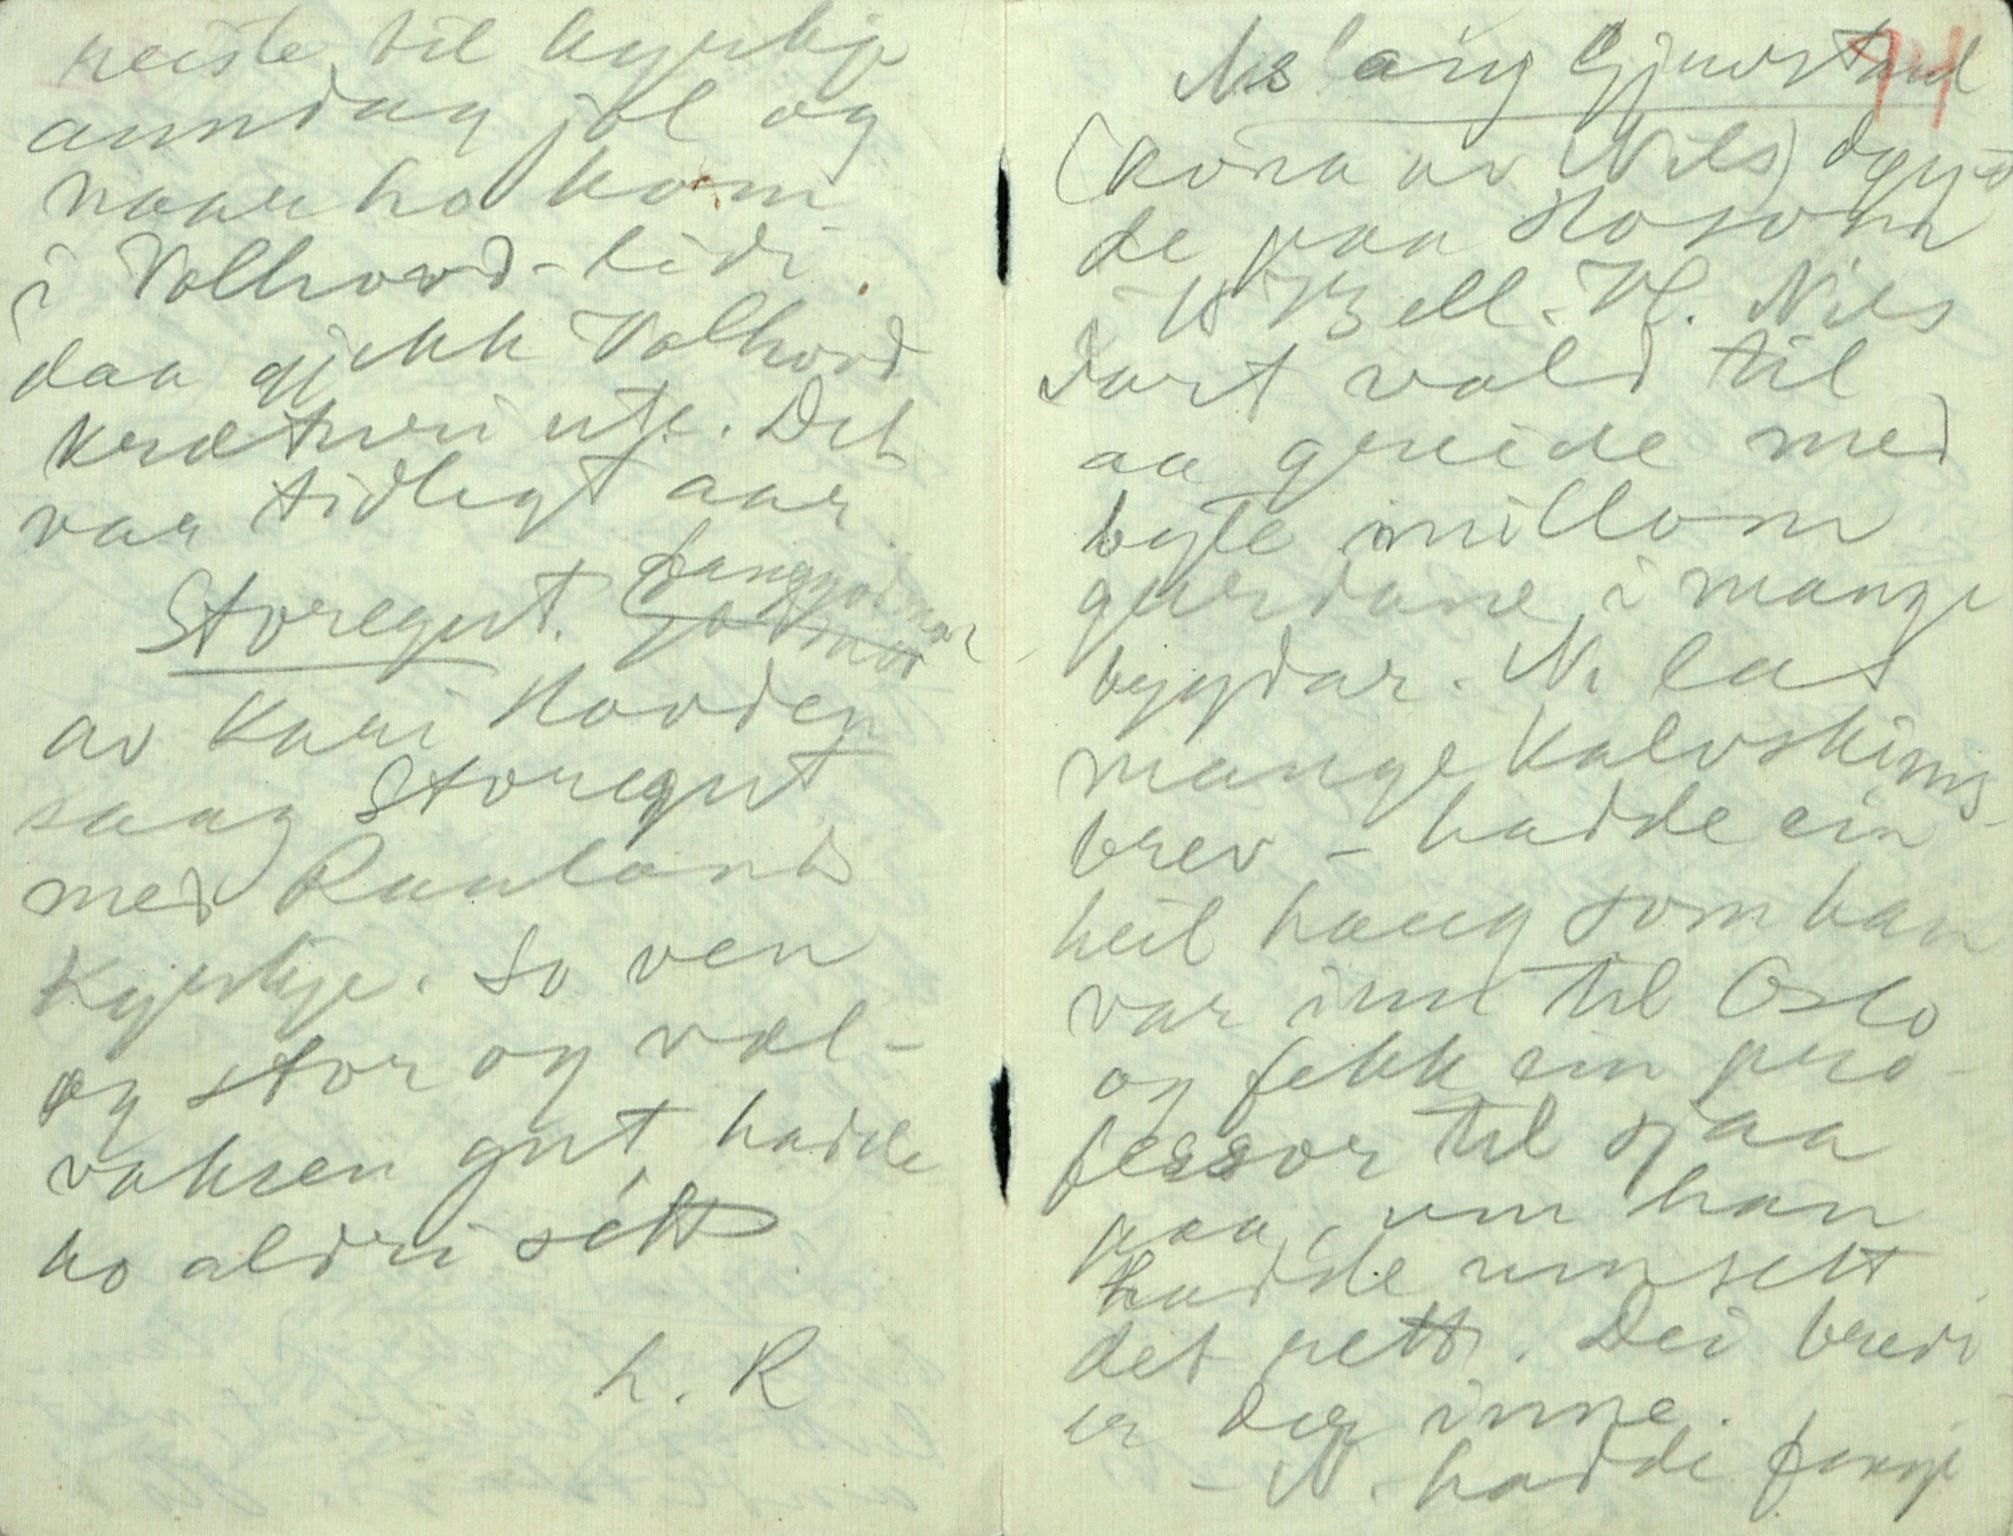 reiste til kyrkje
anndag jol og
naar ho kom
i Vollhovd-lidi
daa gjekk Vollhovd
krøtteri ute. Det
var tidlegt aar
Storegut. Langgodmor
Godmor
av Kari Hovden
saag Storegut
med Raulands
Kyrkje. So ven
og stor og vel-
voksen gut hadde
ho aldri sétt
h. R
74
Aslaug Gjuvstand
(kona av Nils) døy-
de paa
Nils
vart vald til
aa greide med
byte imillom
gardane i mange
bygdar. N. las
mange Kalvskinns-
brev - hadde ein
heil haug som han
var inn til Oslo
og fekk ein pro-
fessor til sjaa
paa, um han
hadde umsett
det rett. Dei brevi
er der inne.
- N. hadde